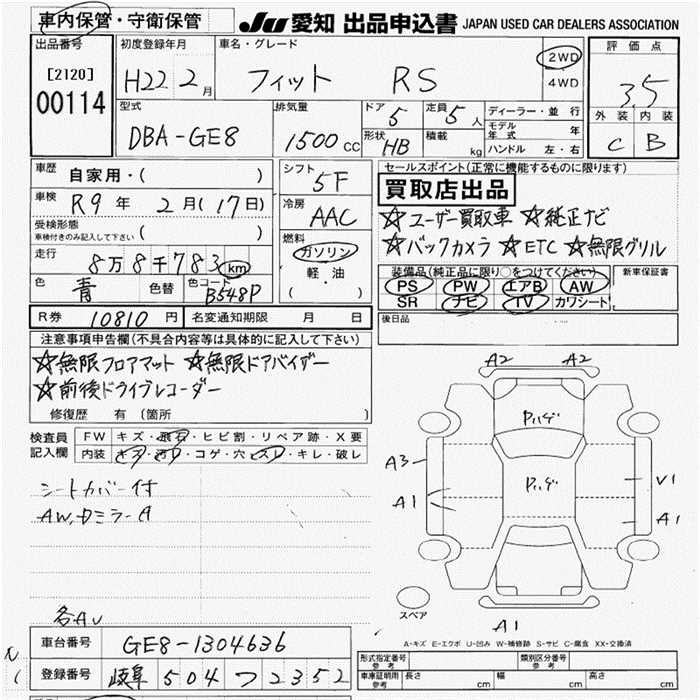 車内保管・守衛保管
JU 愛知 出品申込書 JAPAN USED CAR DEALERS ASSOCIATION
出品番号 初度登録年月 車名・グレード 2WD 評価点
[2120] H22 2月 フィット RS 4WD 3.5
00114
型式 排気量 ドア 5 定員 5人 ディーラー・並行 外装 内装
DBA-GE8 1500cc 形状 HB 積載 kg モデル年式 年 C B
ハンドル 左・右
車歴 自家用・( ) シフト 5F セールスポイント(正常に機能するものに限ります)
買取店出品
車検 R9年 2月(17日) 冷房 AAC ☆ユーザー買取車 ☆純正ナビ
受検形態 車検付きのみ記入して下さい ( ) 燃料 ☆バックカメラ ☆ETC ☆無限グリル
走行 8万8千783km ガソリン 装備品(純正品に限り○をつけてください) 新車保証書
軽・油 PS PW エアB AW
色 青 色替 色コード B548P ( ) SR ナビ TV カワシート
R券 10810円 名変通知期限 月 日 後日品
注意事項申告欄(不具合内容等は具体的に記入して下さい)
☆無限フロアマット ☆無限ドアバイザー
☆前後ドライブレコーダー
修復歴 有 (箇所 )
検査員記入欄 FW キズ・飛石・ヒビ割・リペア跡・X要
内装 キズ・汚レ・コゲ・穴・スレ・キレ・破レ
シートカバー付
AW,ドミラーA
各AU
A2 A2
Pハゲ
Pハゲ
A3 V1
A1 A1
スペア
A1
A-キズ E-エクボ U-凹み W-補修跡 S-サビ C-腐食 XX-交換済
車台番号 GE8-1304636 形式指定番号 参考 類別区分番号 参考
登録番号 岐阜 504 つ 2352 車庫証明用 参考 長さ cm 幅 cm 高さ cm